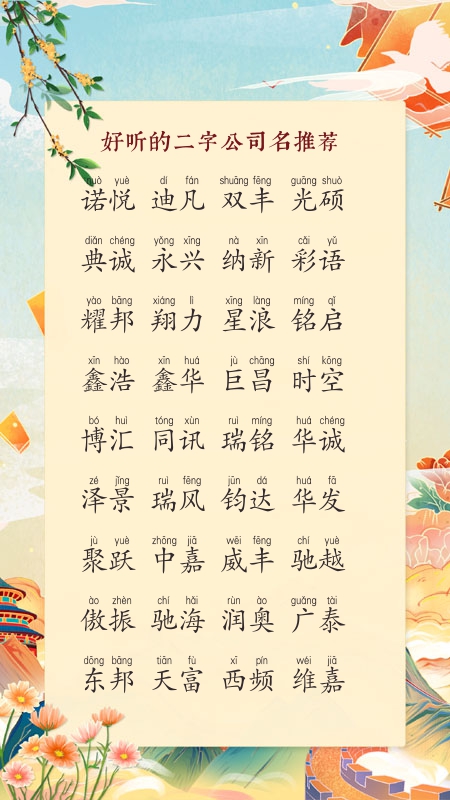 好听的二字公司名推荐
nuò yuè dí fán shuāng fēng guāng shuò
诺悦 迪凡 双丰 光硕
diǎn chéng yǒng xīng nà xīn cǎi yǔ
典诚 永兴 纳新 彩语
yào bāng xiáng lì xīng làng míng qǐ
耀邦 翔力 星浪 铭启
xīn hào xīn huá jù chāng shí kōng
鑫浩 鑫华 巨昌 时空
bó huì tóng xùn ruì míng huá chéng
博汇 同讯 瑞铭 华诚
zé jǐng ruì fēng jūn dá huá fā
泽景 瑞风 钧达 华发
jù yuè zhōng jiā wēi fēng chí yuè
聚跃 中嘉 威丰 驰越
ào zhèn chí hǎi rùn ào guǎng tài
傲振 驰海 润奥 广泰
dōng bāng tiān fù xī pín wéi jiā
东邦 天富 西频 维嘉